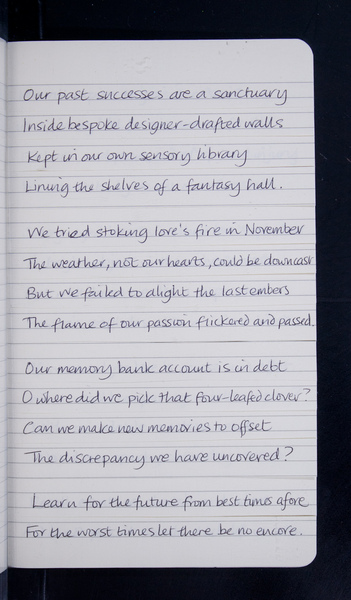 Our past successes are a sanctuary
Inside bespoke designer-drafted walls
Kept in our own sensory library
Lining the shelves of a fantasy hall.
We tried stoking love's fire in November
The weather, not our hearts, could be downcast
But we failed to alight the last embers
The flame of our passion flickered and passed.
Our memory bank account is in debt
O where did we pick that four-leafed clover?
Can we make new memories to offset
The discrepancy we have uncovered?
Learn for the future from best times afore
For the worst times let there be no encore.